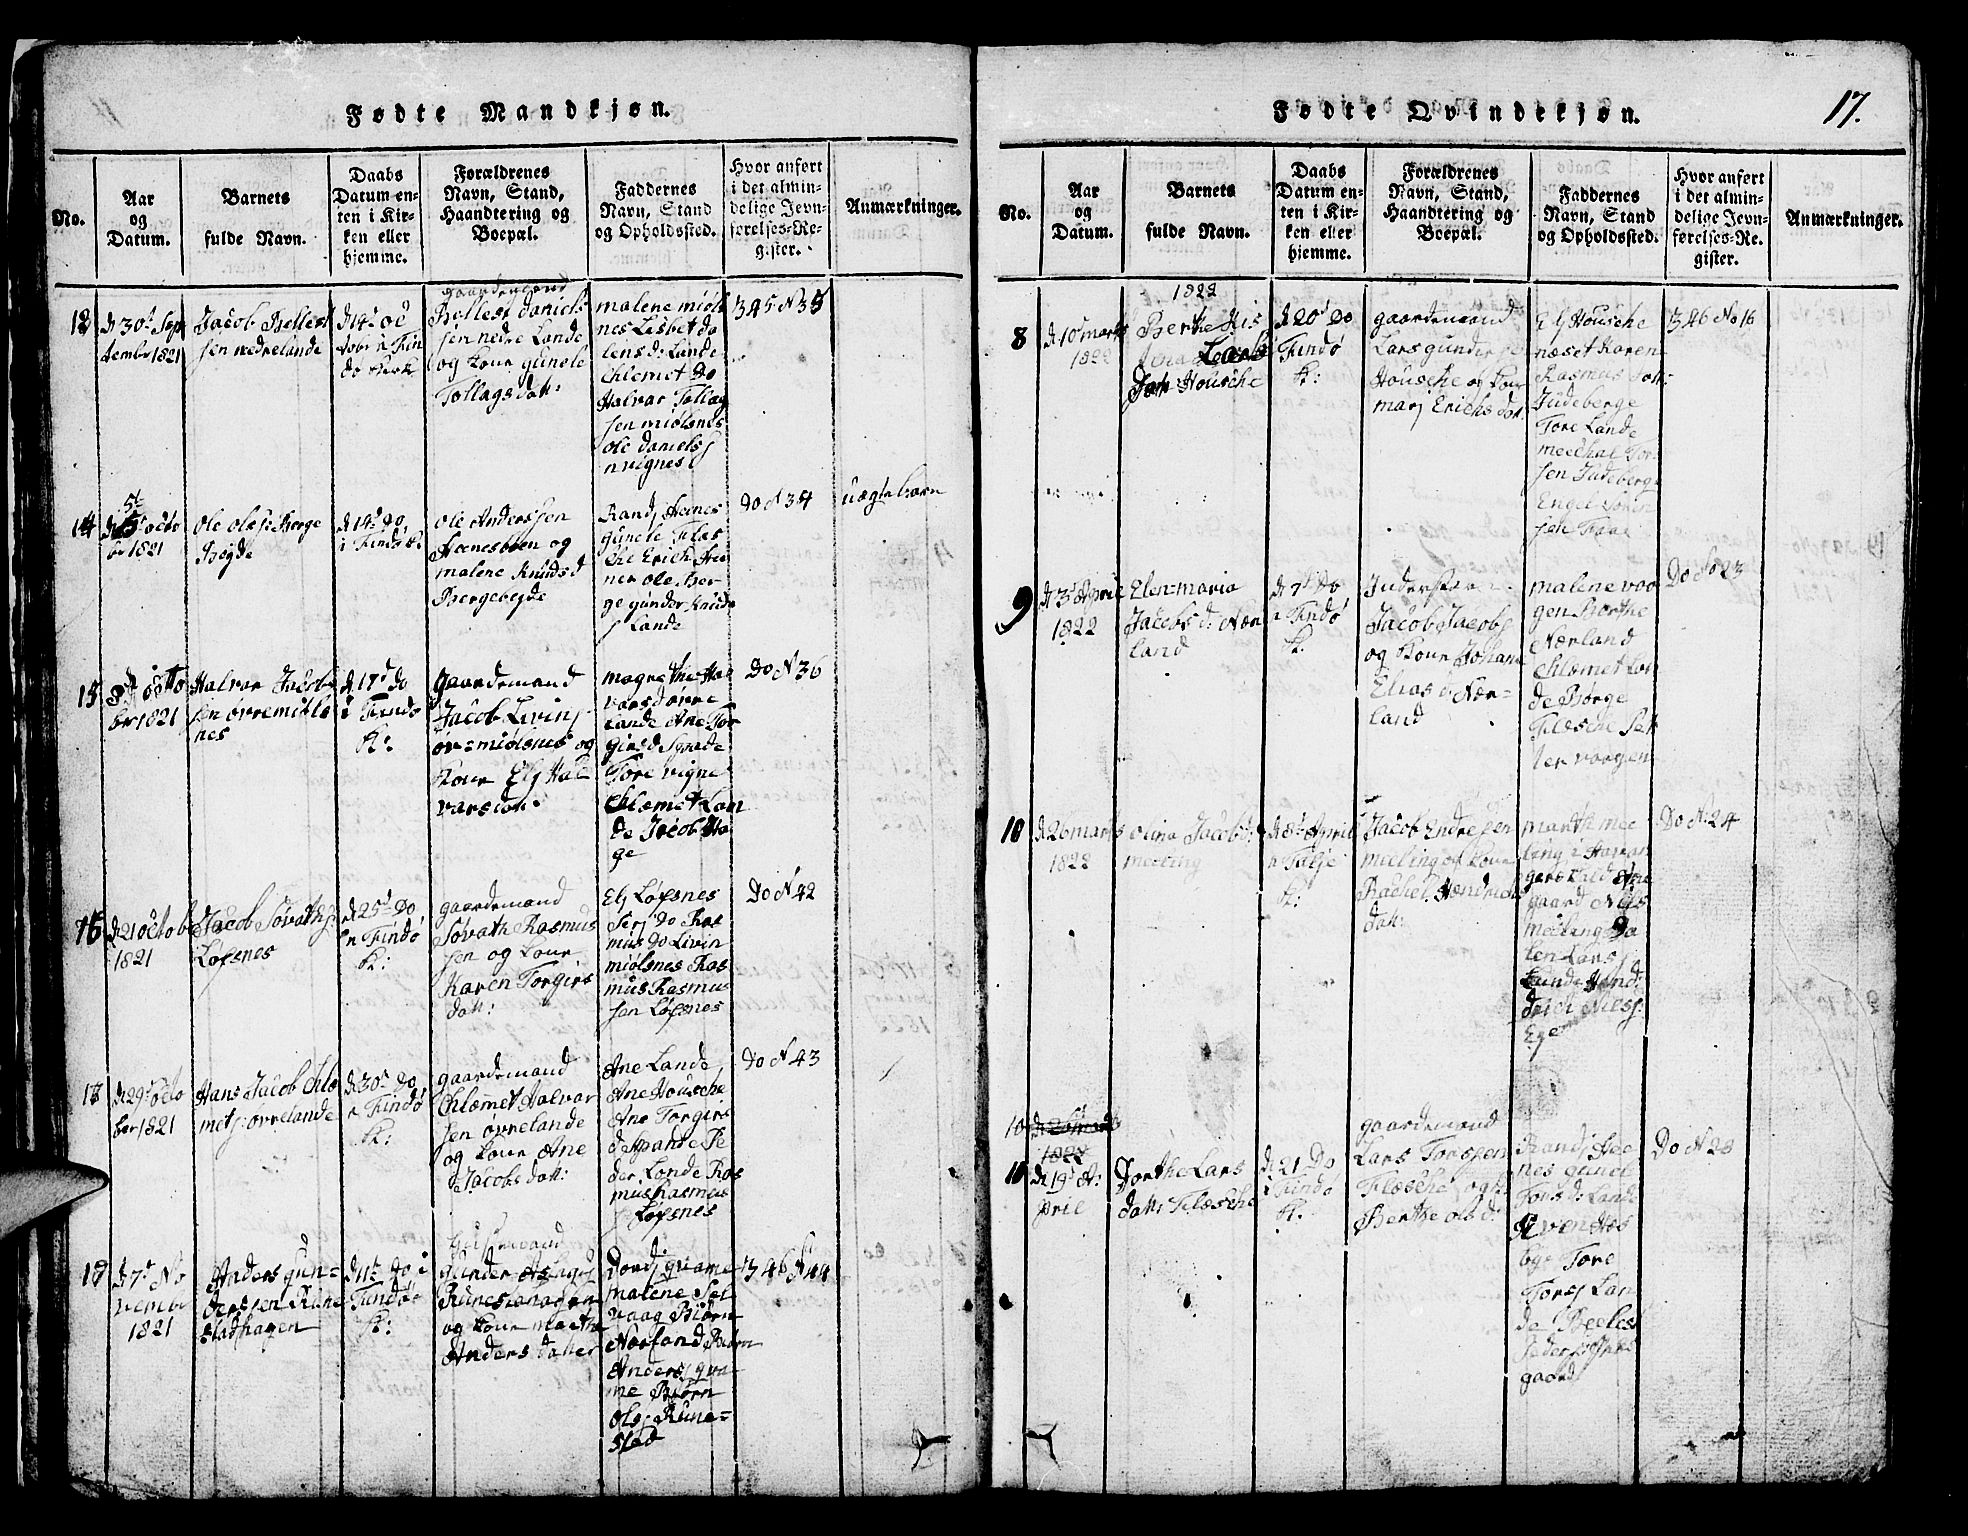 Fødte Mandkjøn.
No.
Aar
og
Datum.
Barnets
fulde Navn.
Daabs
Datum en-
ten i Kir-
ken eller
hjemme.
Forældrenes
Navn, Stand,
Haandtering og
Boepæl.
Faddernes
Navn, Stand
og Opholdssted.
Hvor anført
i det almin-
delige Jevn-
førelses-Re-
gister.
Anmærkninger.
d 30t Sep
tember 1821
Jacob Bellest
sen nedrelande
d 14d oc
tober i Fin
dø Kirk
gaardemand
Bellest Daniels
sen nedre Lande
og Kone gunele
Tollagsdatt:
malene miøls
nes Lisbet Da
lensd: Lande
Chlemet Do
Halvar Tollag
sen miølsnes
ole Daniels
vignes
345 N 35
14
octo
ber 1821
ole ols: Berge
Bøyde
d 14d Do
i Findø K:
ole Anderssen
og
malene Knudsd
Bergebøyde
Rand Heines
gunele Flas
che Erich Hei
ner ole Ber
ge gunder Knuds
Lande
Do N 34
uægte barn
15
octo
ber 1821
Halvar Jacob
sen øvremiøls
nes
d 17d Do
i Findø
K:
gaardemand
Jacob Livins
øvremiølsnes og
Kone Elj Hal
varsdatt:
magrethe Hal
varsd øvre
lande Ane Tor
giersd Spande
Tore vigne
Chlemet Lan
de Jacob Ha
ge
Do N 36
16
d 21 octob
1821
Jacob Søvaths:
Løfsnes
d 25d Do
i Findø
K:
gaardemand
Søvath Rasmus
sen og Kone
Karen Torgiers
datt:
Elj Løfsnes
Serj do Ras
mus Do Livin
miølsnes Ras
mus Rasmus
sen Løfsnes
Do N 42
17
d 29d octo
ber 1821
Hans Jacob Chle
mets: øvrelande
d 30d Do
i Findø
K:
gaardemand
Chlemet Halvar
sen øvrelande
og Kone Ane
Jacobs datt:
Ane Lande
Ane Housche
Ane Torgiers
d Spande Pe
der Lande Ras
mus Rasmus
Løfsnes
Do N 43
d 7d No
vember
1821
Anders gun-
dersen Rune
stadhagen
d 11t Do i
Findø
K:
Huusmand
gunder Aslags
Runestadhagen
og Kone marthe
Anders datter
Dordj qvame
malene Sel
vaag Biørn
Nærland Biørn
Anders qva
me Biørn
Ols Rune-
stad
346 N 44
Fødte Qvindekjøn.
17.
No.
Aar
og
Datum.
Barnets
fulde Navn.
Daabs
Datum en-
ten i Kir-
ken eller
hjemme.
Forældrenes
Navn, Stand,
Haandtering og
Boepæl.
Faddernes
Navn, Stand
og Opholdssted.
Hvor anført
i det almin-
delige Jevn-
førelses-Re-
gister.
Anmærkninger.
1822
8
d 10d marts
1822
Berthe
Lars
datt: Housche
d 20d Do
Findø
K:
gaardemand
Lars gunders
Housche og Kone
marj Erichsdat:
Elj Housche
næset Karen
Rasmus datt:
Judeberge
Tore Lande
mechal Tor
sen Judeberge
Engel
sen
346 No 16
9
d 3d April
1822
Elen maria
Jacobs d: Nær
land
d 7d Do
i Findø
K:
Jacob Jacobs
og Kone Johane
Elias d Nær-
land
malene voo
gen Berthe
Nærland
Chlemet Lan
de Børge
Flæsche Set
ler vorgen
Do No 23
10
d 26 marts
1822
olina Jacobsd:
meeling
d 8d April
i Talje
K:
Jacob Endresen
meeling og Kone
Rachel Hendrichs
datt:
marthe mee
ling
gaard Nels
meeling Da
len Lars
Lunde Hend
drich Nels:
Eje
Do N 24
10
d 26 marts
1822
10
d 19d A:
pril
Dorthe Lars
datt: Flæsche
d 21 Do
i Findø
K:
gaardemand
Lars Torssen
Flæsche og K
Berthe ols d:
Randj Hei
nes gunel
Tors d: Lande
Svend Hes
bye Tore
Tors Lan
de Peeles
Peders
gaard
Do N 28